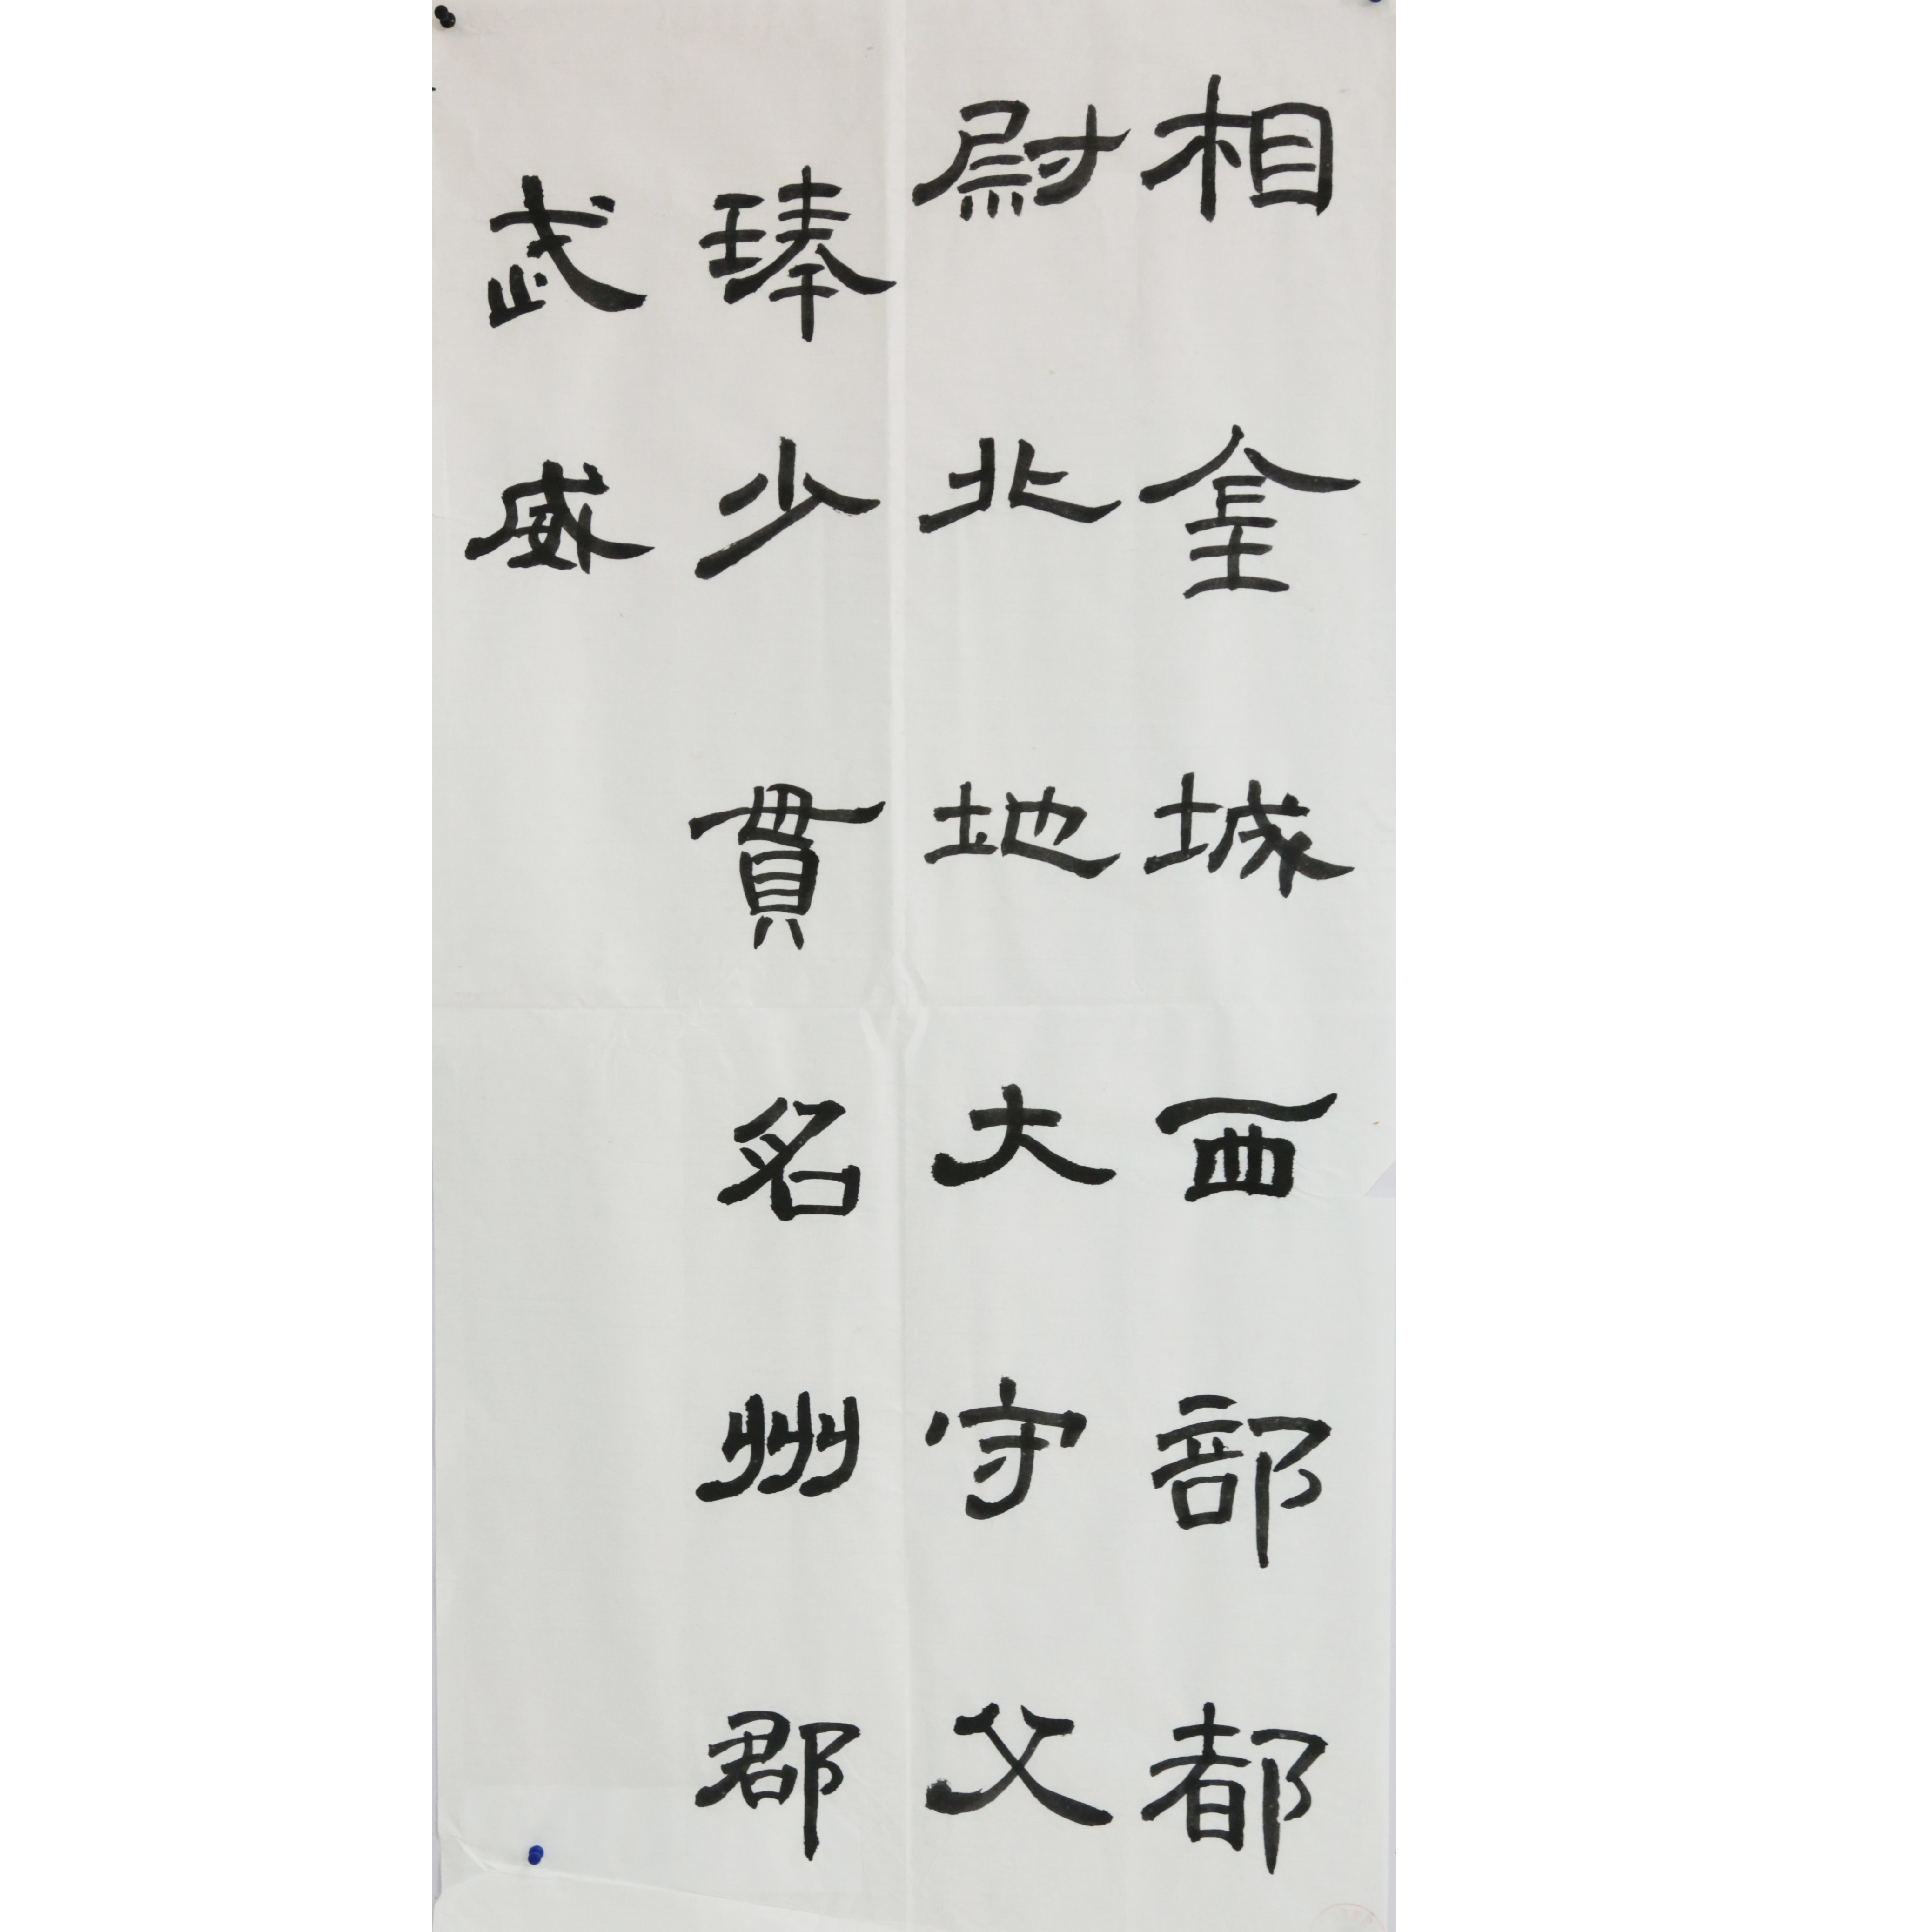 相金城西部都
尉北地大守父
琫少貫名州郡
武威